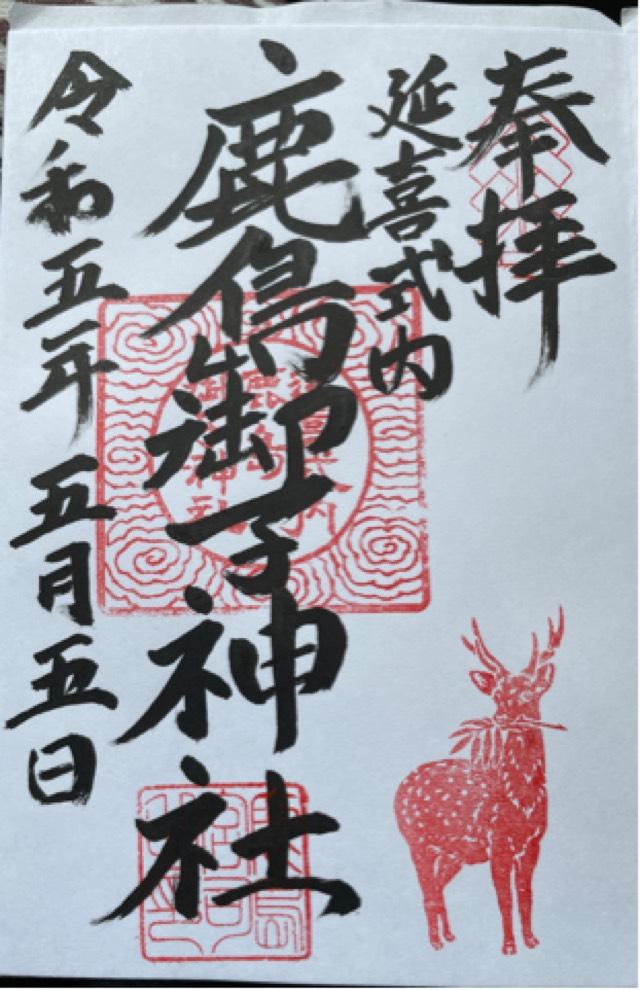 奉拝
延喜式内
鹿島御子神社
令和五年 五月五日